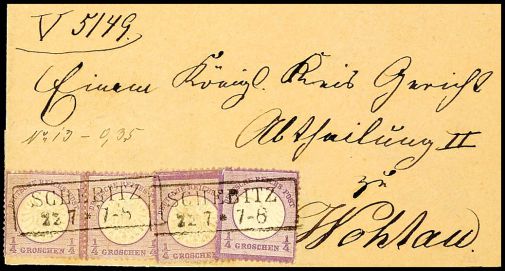 V 5149.
Einem Königl. Kreis Gericht
Abtheilung II
zu
Wohlau.
No 13 - 0,35
SCHEBITZ SCHEBITZ
22 7 * 7-8 22 7 * 7-8
1/4 1/4 1/4 1/4 1/4 1/4 1/4 1/4
GROSCHEN GROSCHEN GROSCHEN GROSCHEN